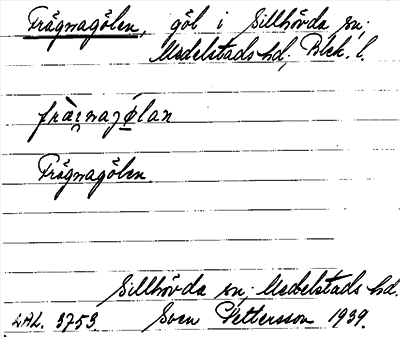 Frågnagölen, göl i Sillhövda sn;
Medelstads hd, Blek. l.
fràgnajø̀lan
Frågnagölen.
Sillhövda sn, Medelstads hd.
LAL. 3753 Sven Pettersson 1939.